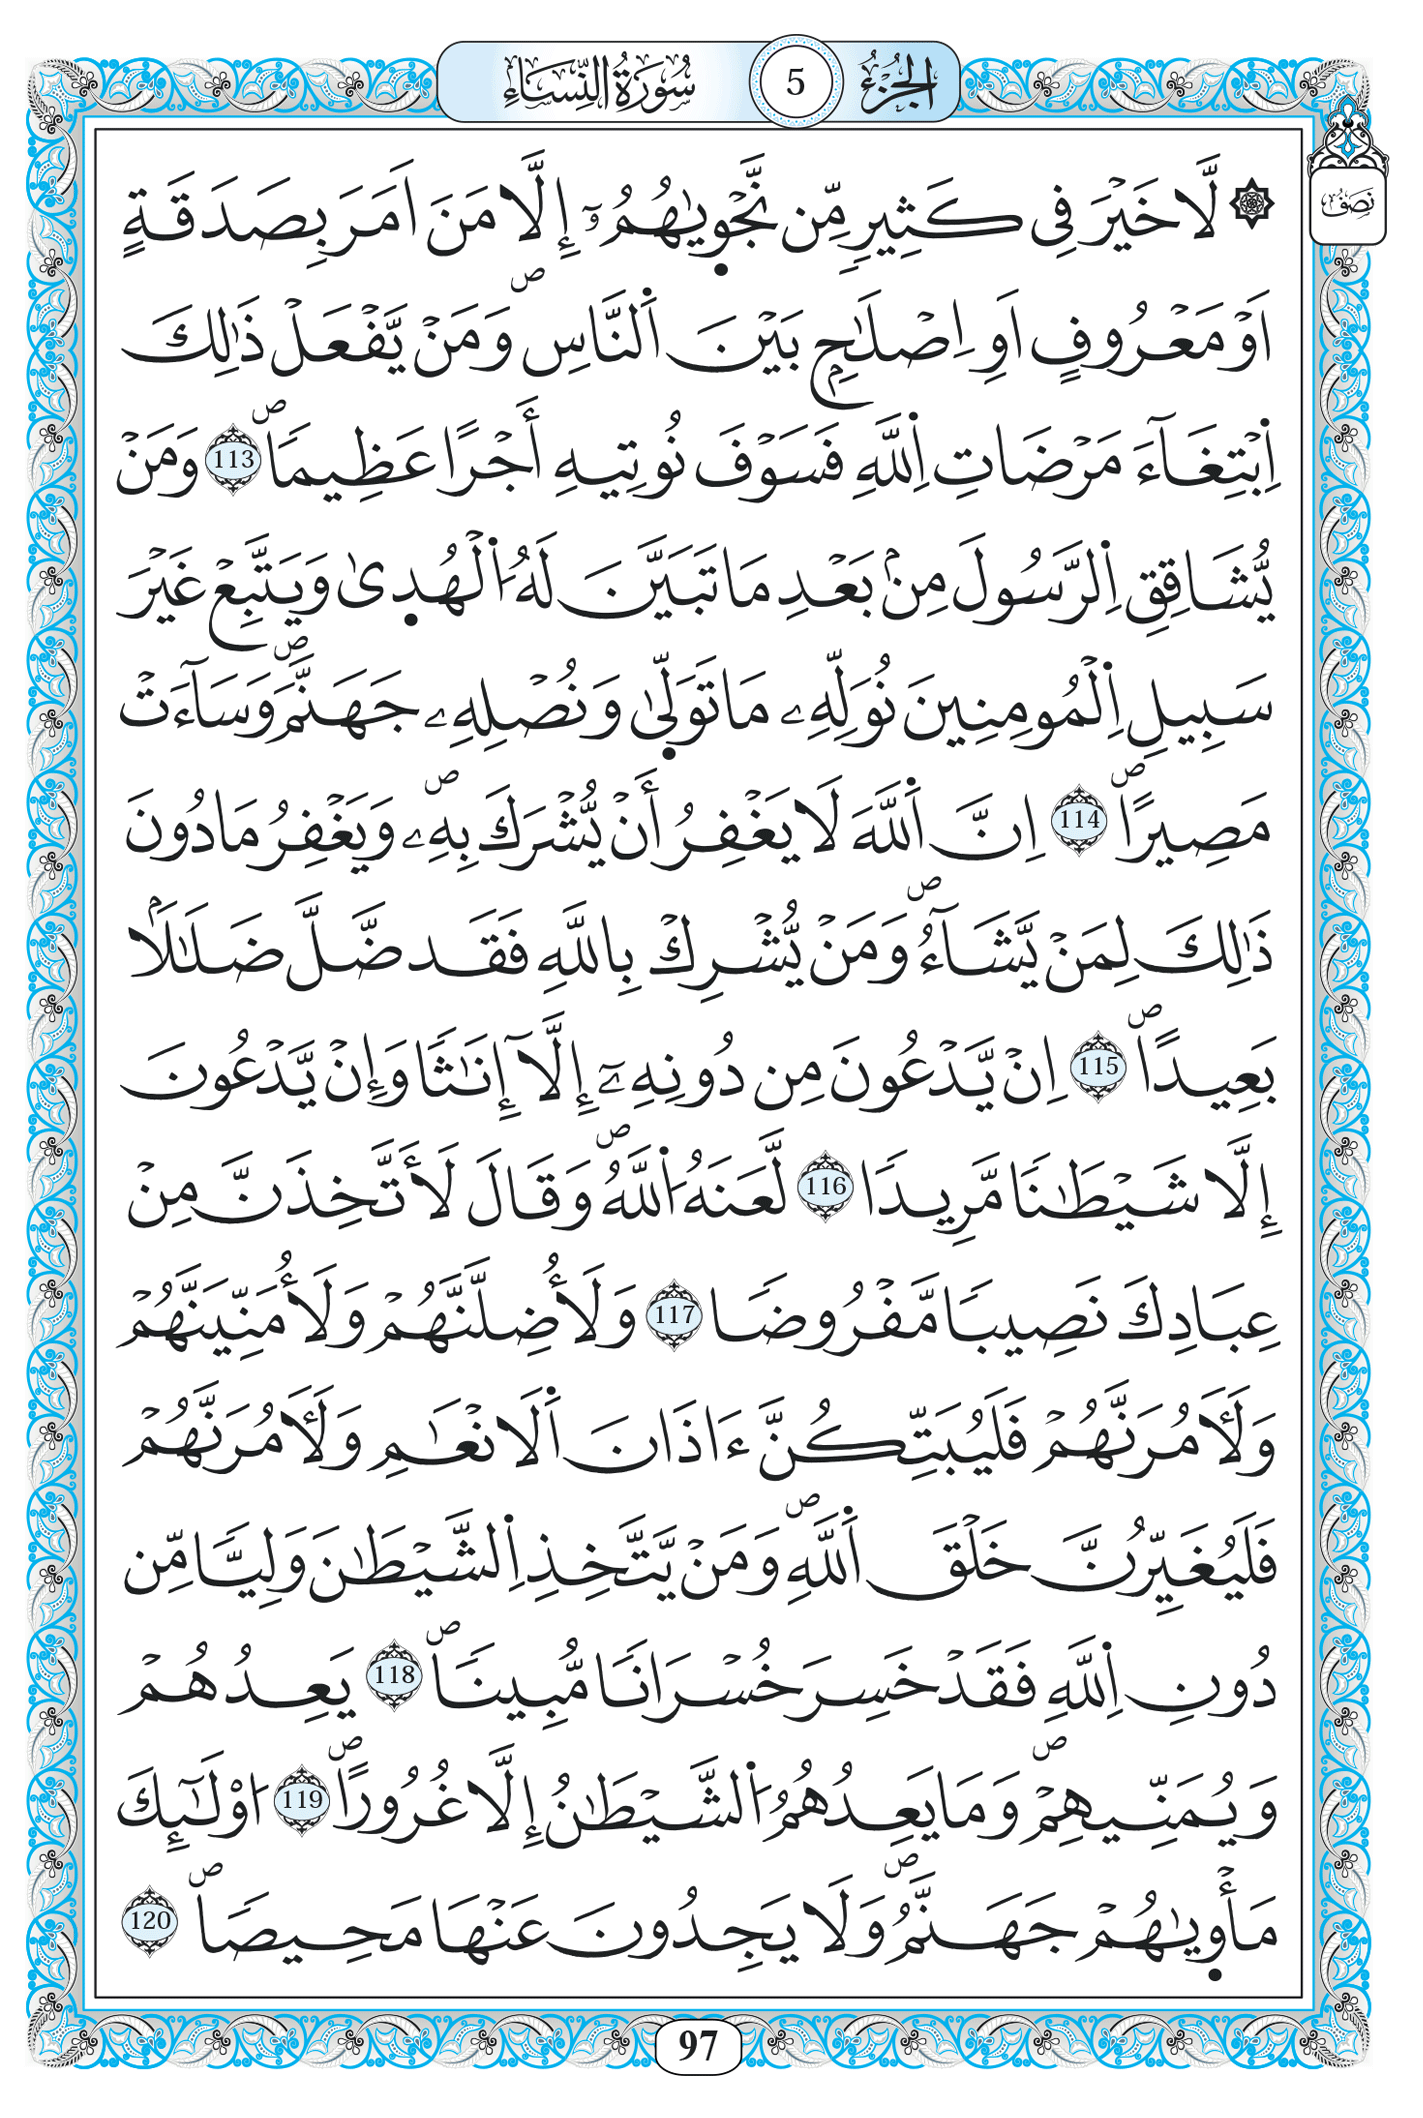 الجزء 5 سورة النساء
نصف
۞ لَّا خَيْرَ فِى كَثِيرٖ مِّن نَّجْو۪يٰهُمُۥٓ إِلَّا مَنَ اَمَرَ بِصَدَقَةٍ
اَوْ مَعْرُوفٍ اَوِ اِصْلَٰحِۢ بَيْنَ اَ۬لنَّاسِۖ وَمَنْ يَّفْعَلْ ذَٰلِكَ
اَ۪بْتِغَآءَ مَرْضَاتِ اِ۬للَّهِ فَسَوْفَ نُوتِيهِ أَجْرًا عَظِيمٗاۖ 113 وَمَنْ
يُّشَاقِقِ اِ۬لرَّسُولَ مِنۢ بَعْدِ مَا تَبَيَّنَ لَهُ اُ۬لْهُد۪ىٰ وَيَتَّبِعْ غَيْرَ
سَبِيلِ اِ۬لْمُومِنِينَ نُوَلِّهِۦ مَا تَوَلّ۪ىٰ وَنُصْلِهِۦ جَهَنَّمَۖ وَسَآءَتْ
مَصِيراًۖ 114 اِنَّ اَ۬للَّهَ لَا يَغْفِرُ أَنْ يُّشْرَكَ بِهِۦۖ وَيَغْفِرُ مَا دُونَ
ذَٰلِكَ لِمَنْ يَّشَآءُۖ وَمَنْ يُّشْرِكْ بِاللَّهِ فَقَد ضَّلَّ ضَلَٰلَاۢ
بَعِيداًۖ 115 اِنْ يَّدْعُونَ مِن دُونِهِۦٓ إِلَّآ إِنَٰثٗا وَإِنْ يَّدْعُونَ
إِلَّا شَيْطَٰنٗا مَّرِيدٗا 116 لَّعَنَهُ اُ۬للَّهُۖ وَقَالَ لَأَتَّخِذَنَّ مِنْ
عِبَادِكَ نَصِيبٗا مَّفْرُوضٗا 117 وَلَأُضِلَّنَّهُمْ وَلَأُمَنِّيَنَّهُمْ
وَلَأٓمُرَنَّهُمْ فَلَيُبَتِّكُنَّ ءَاذَانَ اَ۬لَانْعَٰمِ وَلَأٓمُرَنَّهُمْ
فَلَيُغَيِّرُنَّ خَلْقَ اَ۬للَّهِۖ وَمَنْ يَّتَّخِذِ اِ۬لشَّيْطَٰنَ وَلِيّٗا مِّن
دُونِ اِ۬للَّهِ فَقَدْ خَسِرَ خُسْرَانٗا مُّبِينٗاۖ 118 يَعِدُهُمْ
وَيُمَنِّيهِمْۖ وَمَا يَعِدُهُمُ اُ۬لشَّيْطَٰنُ إِلَّا غُرُوراًۖ 119 اوْلَٰٓئِكَ
مَأْو۪يٰهُمْ جَهَنَّمُۖ وَلَا يَجِدُونَ عَنْهَا مَحِيصٗاۖ 120
97